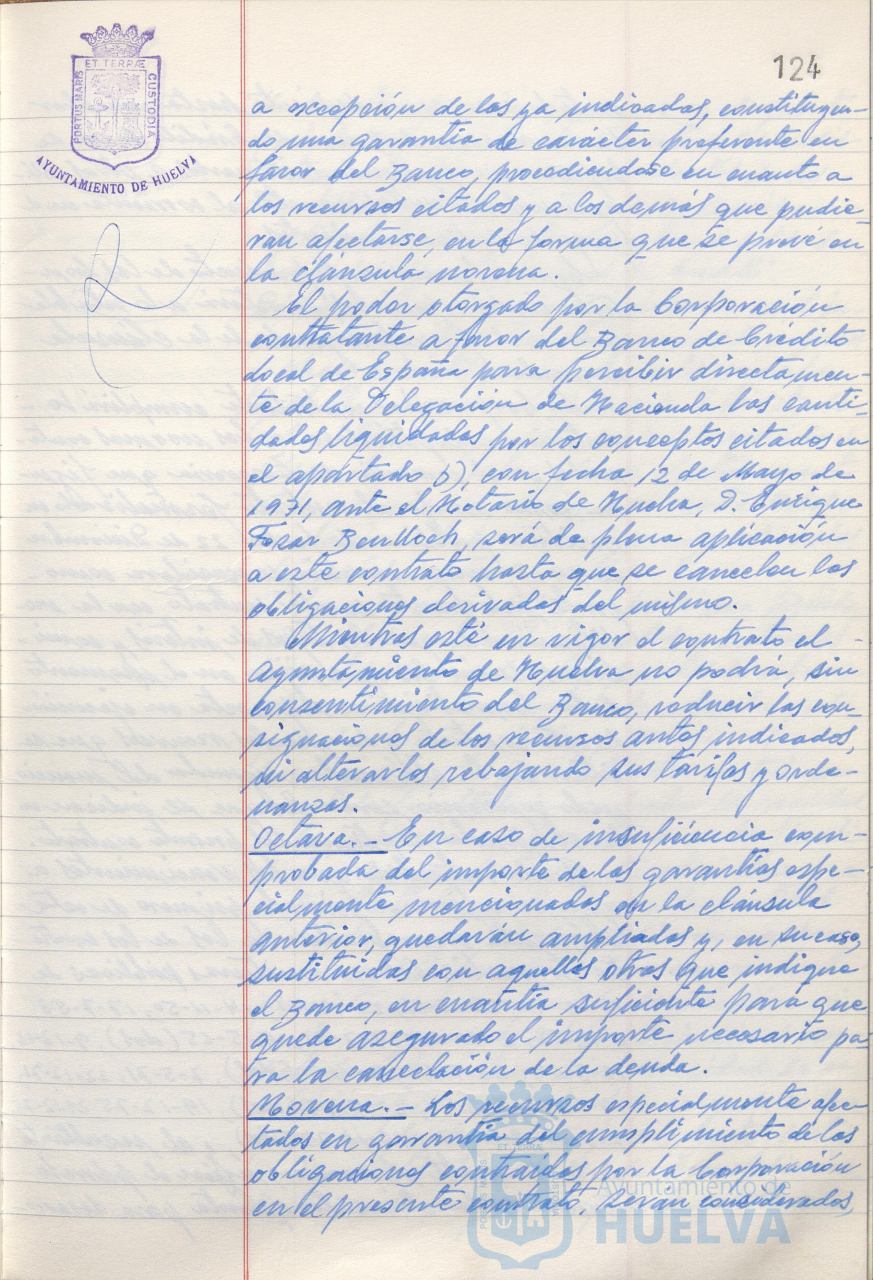 124
ET TERRÆ
PORTUS MARIS
CUSTODIA
AYUNTAMIENTO DE HUELVA
a excepción de los ya indicados, constituyen-
do una garantía de carácter preferente en
favor del Banco, procediendose en cuanto a
los recursos citados y a los demás que pudie-
ran afectarse, en la forma que se prevé en
la cláusula novena.
El poder otorgado por la Corporación
contratante a favor del Banco de Crédito
Local de España para percibir directamen-
te de la Delegación de Hacienda las canti-
dades liquidadas por los conceptos citados en
el apartado b), con fecha 12 de Mayo de
1971, ante el Notario de Huelva, D. Enrique
Fosar Benlloch, será de plena aplicación
a este contrato hasta que se cancelen las
obligaciones derivadas del mismo.
Mientras esté en vigor el contrato el -
Ayuntamiento de Huelva no podrá, sin
consentimiento del Banco, reducir las con-
signaciones de los recursos antes indicados,
ni alterarlos rebajando sus tarifas y orde-
nanzas.
Octava.- En caso de insuficiencia com-
probada del importe de las garantías espe-
cialmente mencionadas en la cláusula
anterior, quedarán ampliadas y, en su caso,
sustituidas con aquellas otras que indique
el Banco, en cuantía suficiente para que
quede asegurado el importe necesario pa-
ra la cancelación de la deuda.
Novena.- Los recursos especialmente afec-
tados en garantía del cumplimiento de las
obligaciones contraidas por la Corporación
en el presente contrato, serán considerados,
Ayuntamiento de
HUELVA